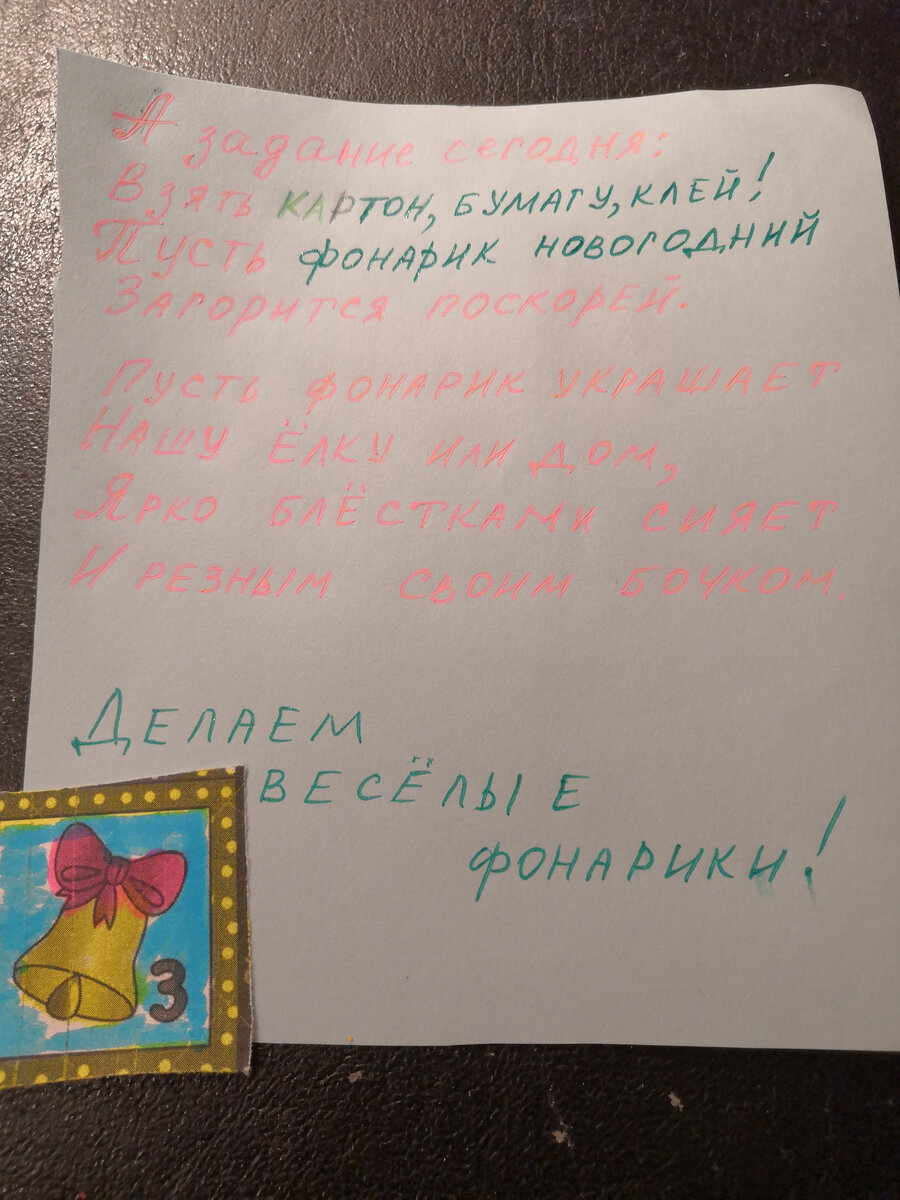 А задание сегодня:
Взять КАРТОН, БУМАГУ, КЛЕЙ!
Пусть ФОНАРИК НОВОГОДНИЙ
Загорится поскорей.
Пусть фонарик украшает
Нашу ёлку или дом,
Ярко блёстками сияет
И резным своим бочком.
ДЕЛАЕМ
ВЕСЁЛЫЕ
ФОНАРИКИ!
3